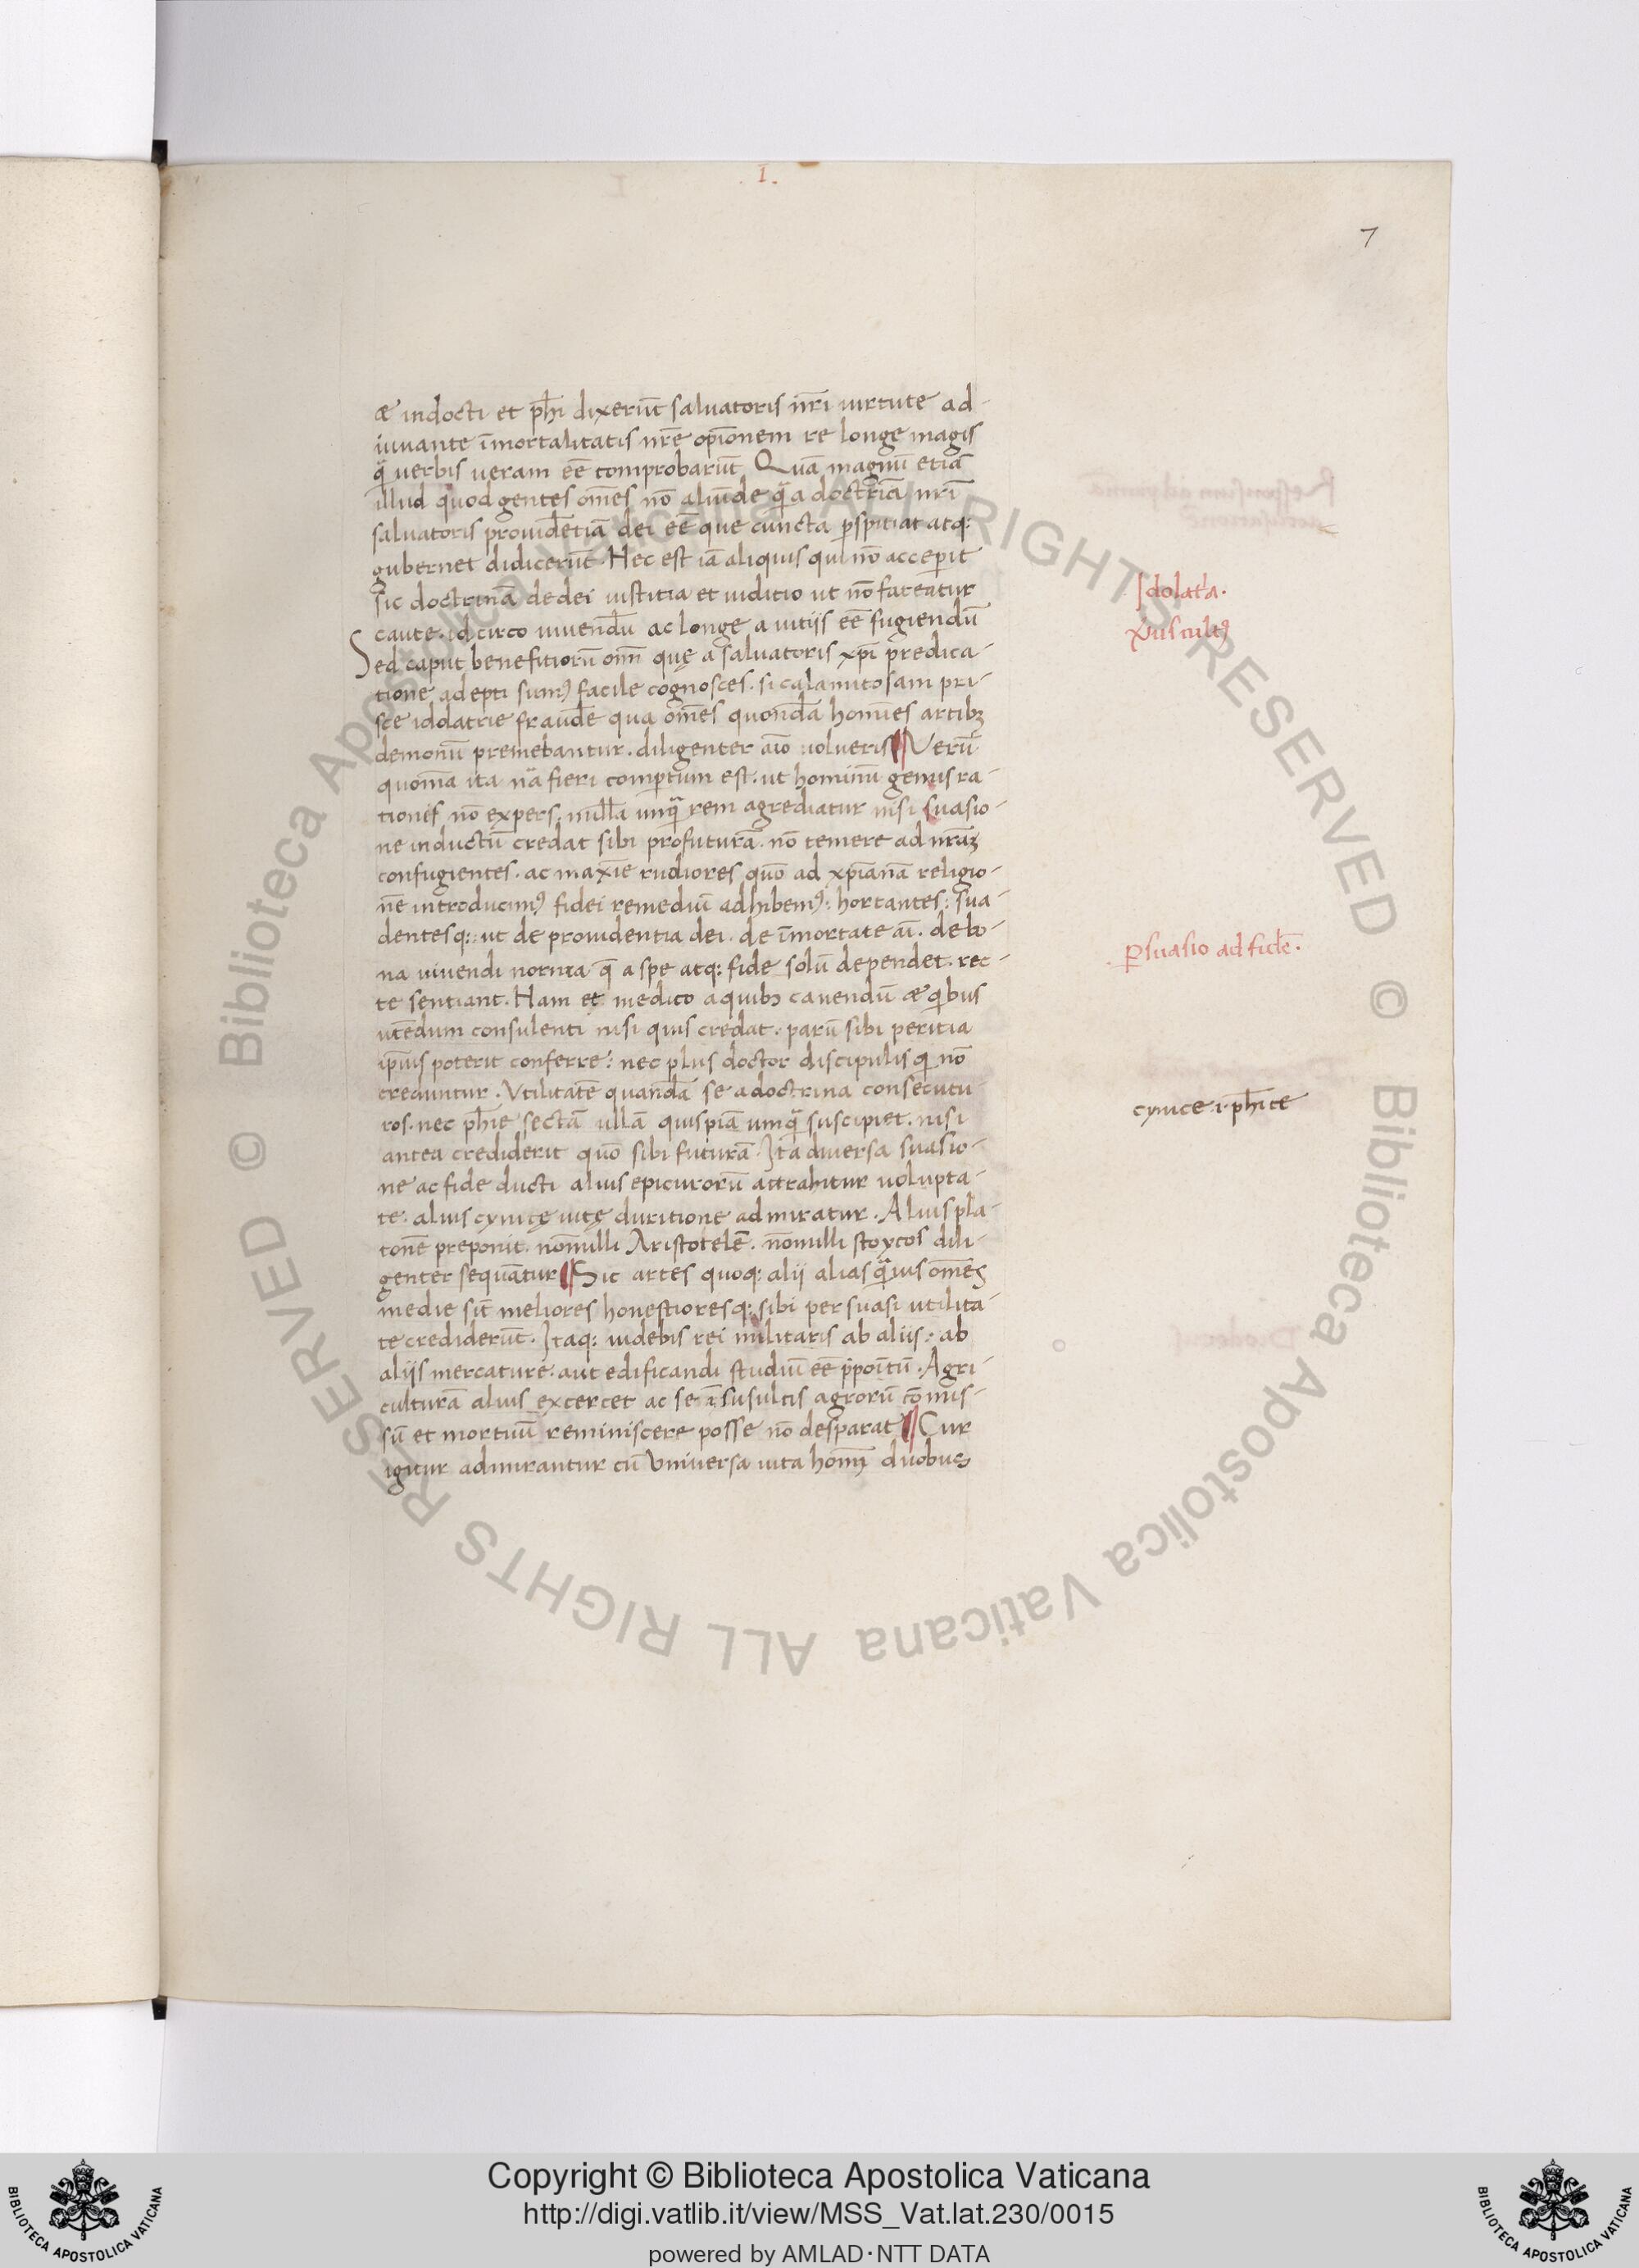 .I.
7
æ indocti et ph̅i dixerūt salvatoris nr̄i virtute ad-
iuvante īmortalitatis nr̄e opīonem re longe magis
qᷓ verbis veram eē comprobarūt. Quā magnū etiā
illud quod gentes om̄es nō aliūde qᷓ a doctrīa nr̄i
salvatoris providētiā dei eē que cuncta ꝑspitiat atq:
gubernet didicerūt. Hec est iā aliquis qui nō acceperit
sic doctrinā de dei iustitia et iuditio ut nō fateatur
caute. idcirco vivendū ac longe a vitijs eē fugiendū
Sed caput benefitiorū om̄ quę a salvatoris xp̄i predica-
tione adepti sumꝰ facile cognosces. si calamitosam pri-
sce idolatrie fraude qua om̄es quondā homīes artibꝫ
demonū premebantur. diligenter aīo volveris ¶ Verū
quoniā ita nā fieri comptum est. ut hominū genus ra-
tionis nō expers. nullā unqᷓ rem agrediatur nisi suasio-
ne inductū credat sibi profuturā. nō temere ad nr̄aꝫ
confugientes. ac maxīe rudiores quō ad xp̄ianā religio-
nē introducimꝰ fidei remediū adhibemꝰ: hortantes: sua-
dentesq: ut de providentia dei. de īmortate aī. de bo-
na vivendi norma q̄ a spe atq: fide solū dependet. rec-
te sentiant. Ham et medico a quibꝫ cavendū æ qibus
utēdum consulenti nisi quis credat. parū sibi peritia
ip̄ius poterit conferre: nec plus doctor discipulis qi nō
creduntur. Utilitatē quandā se a doctrina consecutu
ros. nec ph̅ie sectā ullā quispiā umqᷓ suscipiet. nisi
antea crediderit quō sibi futurā. Ita diversa suasio-
ne ac fide ducti alius epicurorū attrahitur volupta-
te. alius cynicę vitę duritione admiratur. Alius pla-
tonē preponit. nōnulli Aristotelē. nōnulli stoycos dili-
genter sequātur ¶ Sic artes quoq: alij alias qᷓvis om̄es
medie sīt meliores honestioresq: sibi persuasi utilita-
te crediderūt. Itaq: videbis rei militaris ab aliis: ab
alijs mercature. aut edificandi studiū eē p̄poītū. Agri-
culturā alius excercet ac se ī susultis agrorū cōmis-
sū et mortuū reminiscere posse nō desparat ¶ Cur
igitur admirantur cū Universa vita homī duobus
Idolat'a.
ꝑsuasio ad fidē.
cynice .i. ph̅ice
Copyright © Biblioteca Apostolica Vaticana
http://digi.vatlib.it/view/MSS_Vat.lat.230/0015
powered by AMLAD·NTT DATA
BIBLIOTECA APOSTOLICA VATICANA
BIBLIOTECA APOSTOLICA VATICANA
© Biblioteca Apostolica Vaticana ALL RIGHTS RESERVED
© Biblioteca Apostolica Vaticana ALL RIGHTS RESERVED